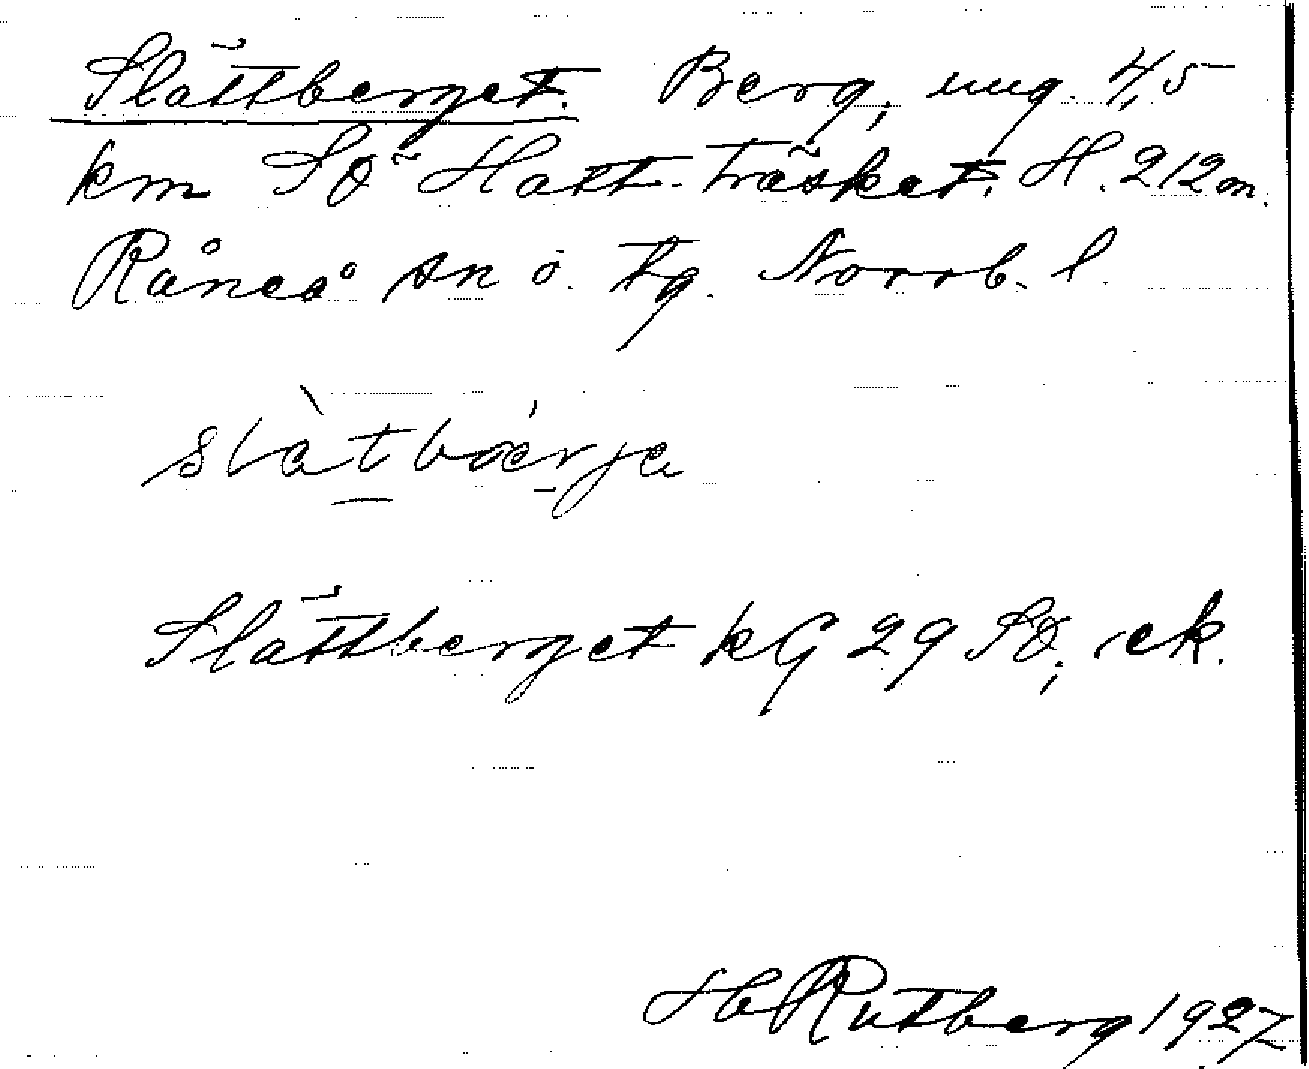 Slättberget. Berg, ung. 4,5
km SÖ Hatt-träsket. H. 212 m.
Råneå sn o. tg. Norrb. l.
slàtbǽrje
Slättberget kG 29 SÖ, ek.
Hb Rutberg 1927